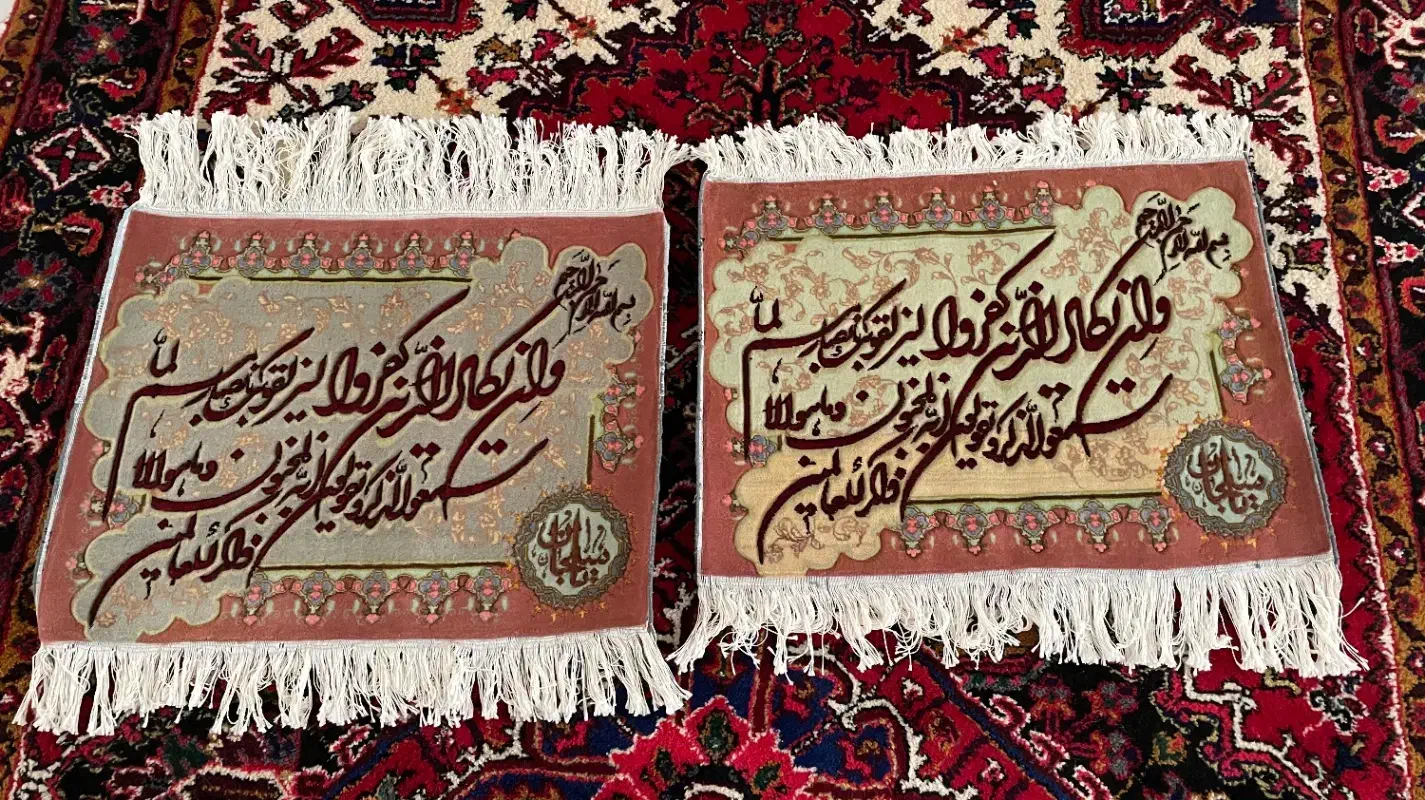 بسم الله الرحمن الرحیم
وان یکاد الذین کفروا لیزلقونک بابصارهم لما
سمعوا الذکر و یقولون انه لمجنون وما هو الا
ذکر للعالمین
بسم الله الرحمن الرحیم
وان یکاد الذین کفروا لیزلقونک بابصارهم لما
سمعوا الذکر و یقولون انه لمجنون وما هو الا
ذکر للعالمین